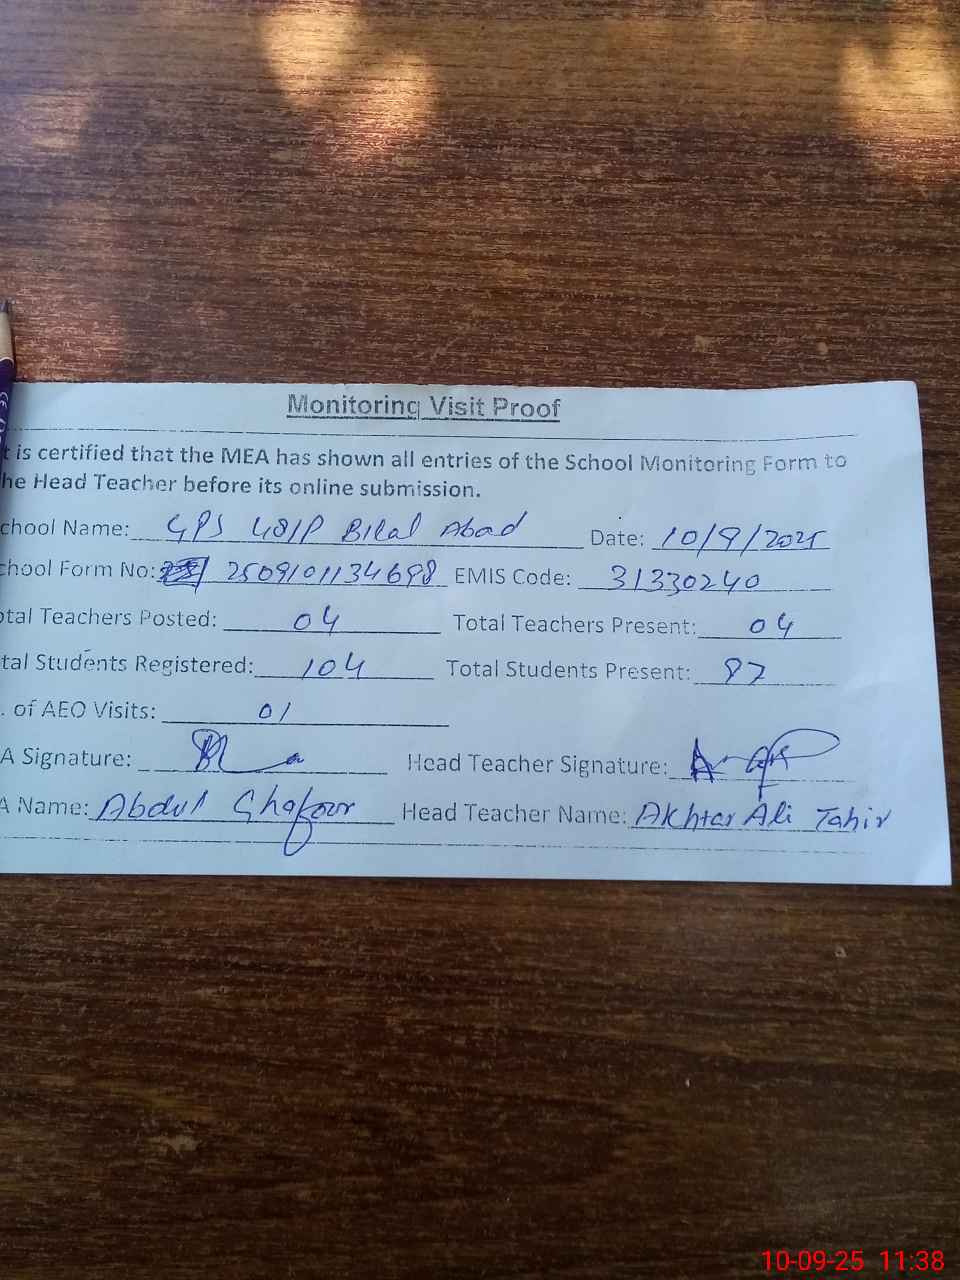 Monitoring Visit Proof
t is certified that the MEA has shown all entries of the School Monitoring Form to
he Head Teacher before its online submission.
chool Name: GPS 48/P Bilal Abad Date: 10/9/2025
chool Form No: 2509101134698 EMIS Code: 31330240
otal Teachers Posted: 04 Total Teachers Present: 04
tal Students Registered: 104 Total Students Present: 87
. of AEO Visits: 01
A Signature: Head Teacher Signature:
A Name: Abdul Ghafoor Head Teacher Name: Akhtar Ali Tahir
10-09-25 11:38